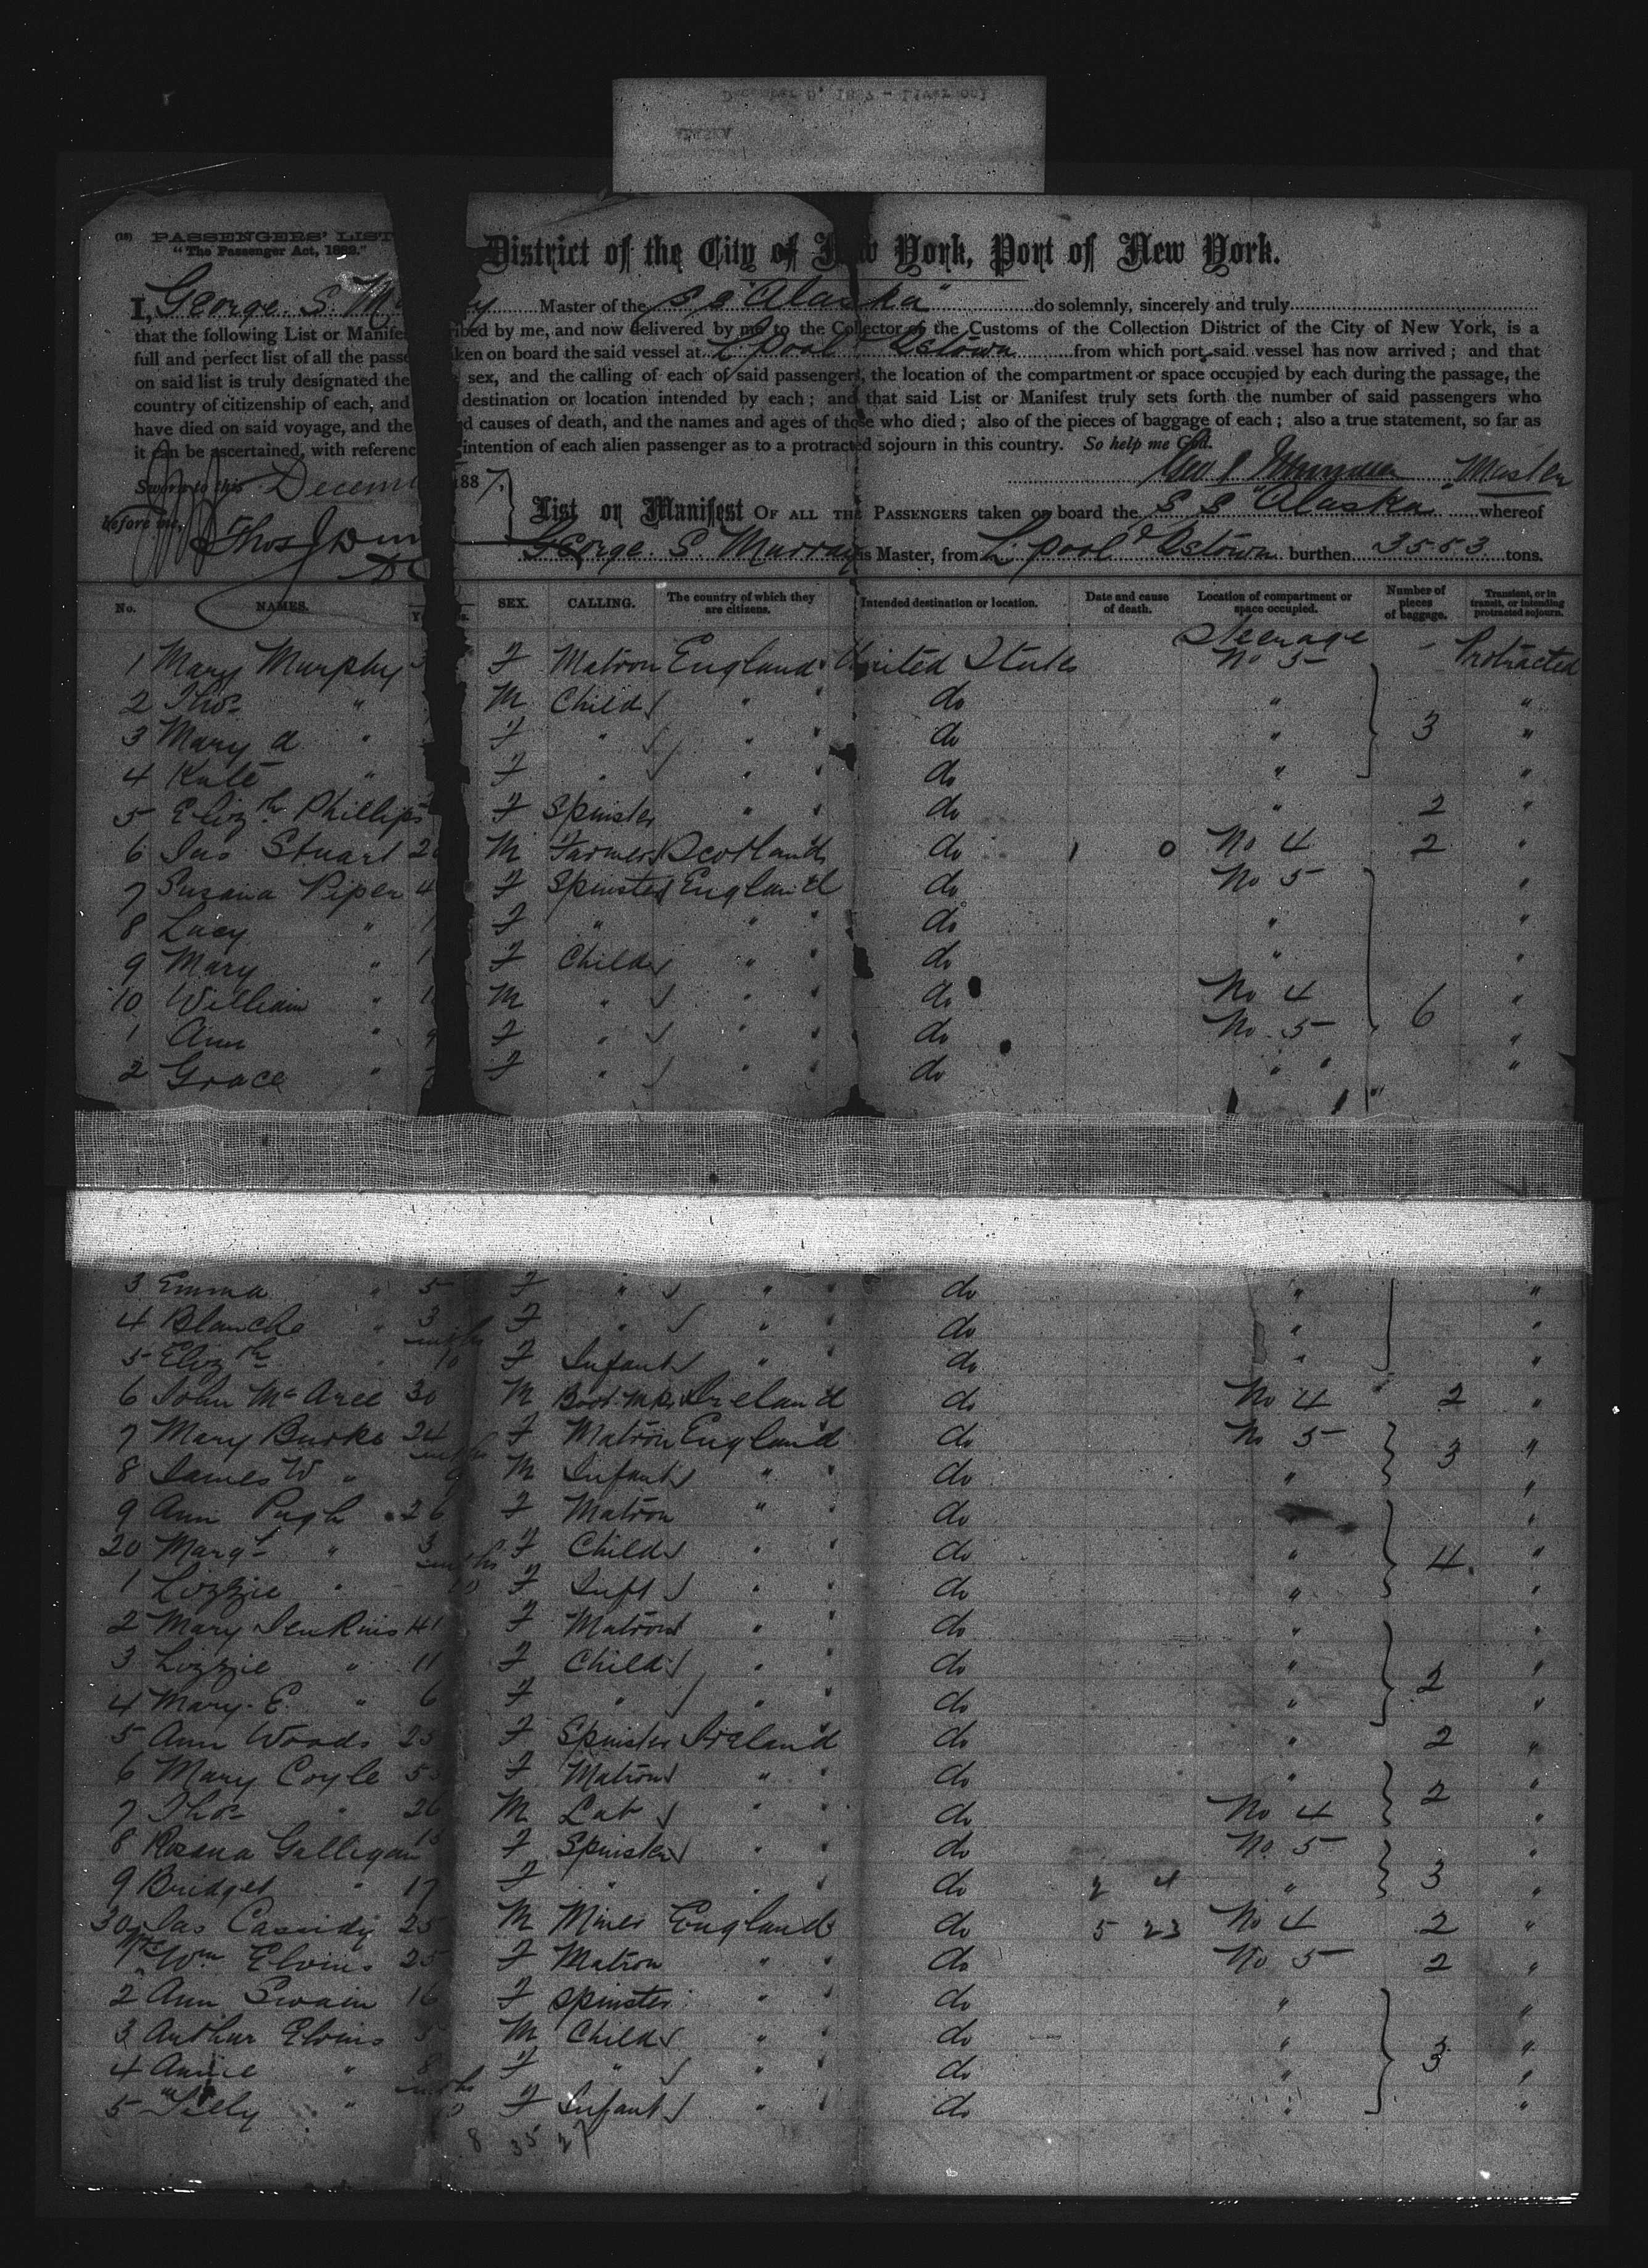 (18) PASSENGERS' LIST
"The Passenger Act, 1882."
District of the City of New York, Port of New York.
I, George S. M y Master of the S S "Alaska" do solemnly, sincerely and truly
that the following List or Manife ribed by me, and now delivered by me to the Collector of the Customs of the Collection District of the City of New York, is a
full and perfect list of all the passe ken on board the said vessel at L'pool & Qstown from which port said vessel has now arrived; and that
on said list is truly designated the sex, and the calling of each of said passengers, the location of the compartment or space occupied by each during the passage, the
country of citizenship of each, and destination or location intended by each; and that said List or Manifest truly sets forth the number of said passengers who
have died on said voyage, and the d causes of death, and the names and ages of those who died; also of the pieces of baggage of each; also a true statement, so far as
it can be ascertained, with referenc intention of each alien passenger as to a protracted sojourn in this country. So help me God.
Geo S Murray Master
Sworn to this Decem 1887,
before me, Thos J Dun
List or Manifest OF ALL THE PASSENGERS taken on board the S S "Alaska" whereof
George S. Murray is Master, from L'pool & Qstown burthen 3553 tons.
No. NAMES. SEX. CALLING. The country of which they are citizens. Intended destination or location. Date and cause of death. Location of compartment or space occupied. Number of pieces of baggage. Transient, or in transit, or intending protracted sojourn.
Steerage
1 Mary Murphy F Matron England United States No 5 - Protracted
2 Thos " M Child " " do " "
3 Mary A " F " " " do " 3 "
4 Kate " F " " " do " "
5 Elizth Phillips F Spinster " " do " 2 "
6 Jas Stuart 2 M Farmer Scotland do 1 0 No 4 2 "
7 Susana Piper 4 F Spinster England do No 5 "
8 Lucy " 1 F " " " do " "
9 Mary " 1 F Child " " do " "
10 William " 1 M " " " do No 4 6 "
1 Ann " 9 F " " " do No 5 "
2 Grace " F " " " do " " "
3 Emma " 5 F " " " do " "
4 Blanche " 3 F " " " do " "
5 Elizth " mths 10 F Infant " " do " "
6 John McAree 30 M Boot Mkr Ireland do No 4 2 "
7 Mary Burke 24 F Matron England do No 5 3 "
8 James W " mths M Infant " " do " "
9 Ann Pugh 26 F Matron " " do " "
20 Margt " 3 F Child " " do " 4 "
1 Lizzie " mths 10 F Inft " " do " "
2 Mary Jenkins 41 F Matron " " do " "
3 Lizzie " 11 F Child " " do " 2 "
4 Mary E. " 6 F " " " do " "
5 Ann Woods 25 F Spinster Ireland do " 2 "
6 Mary Coyle 5 F Matron " " do " 2 "
7 Thos " 26 M Lab " " do No 4 "
8 Rosana Galligan F Spinster " " do No 5 "
9 Bridget " 17 F " " " do 2 4 " 3 "
30 Jas Cassidy 25 M Miner England do 5 23 No 4 2 "
1 Mrs Wm Elvins 25 F Matron " " do No 5 2 "
2 Ann Swain 16 F Spinster " " do " "
3 Arthur Elvins 5 M Child " " do " "
4 Annie " 8 F " " " do " 3 "
5 Tilly " mths F Infant " " do " "
8 35 27